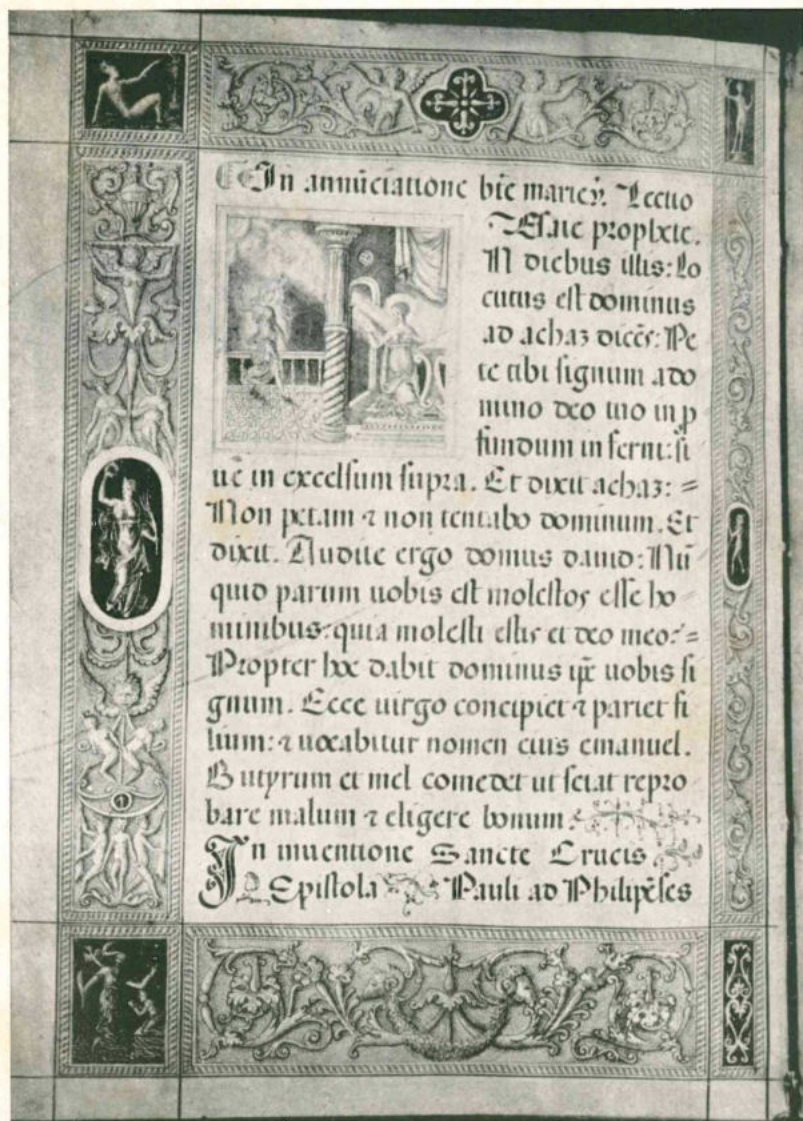 In annūciatione btē marie ỹ. Lectio
Esaie prophete.
N diebus illis: Lo
cutus est dominus
ad achaz dicēs: Pe
te tibi signum a do
mino deo tuo in p
fundum inferni: si
ue in excelsum supra. Et dixit achaz: =
Non petam ⁊ non tentabo dominum. Et
dixit. Audite ergo domus dauid: Nū
quid parum uobis est molestos esse ho
minibus: quia molesti estis et deo meo: =
Propter hoc dabit dominus ip̄e uobis si
gnum. Ecce uirgo concipiet ⁊ pariet fi
lium: ⁊ uocabitur nomen eius emanuel.
Butyrum et mel comedet ut sciat repro
bare malum ⁊ eligere bonum.
In inuentione Sancte Crucis
Epistola Pauli ad Philipēses